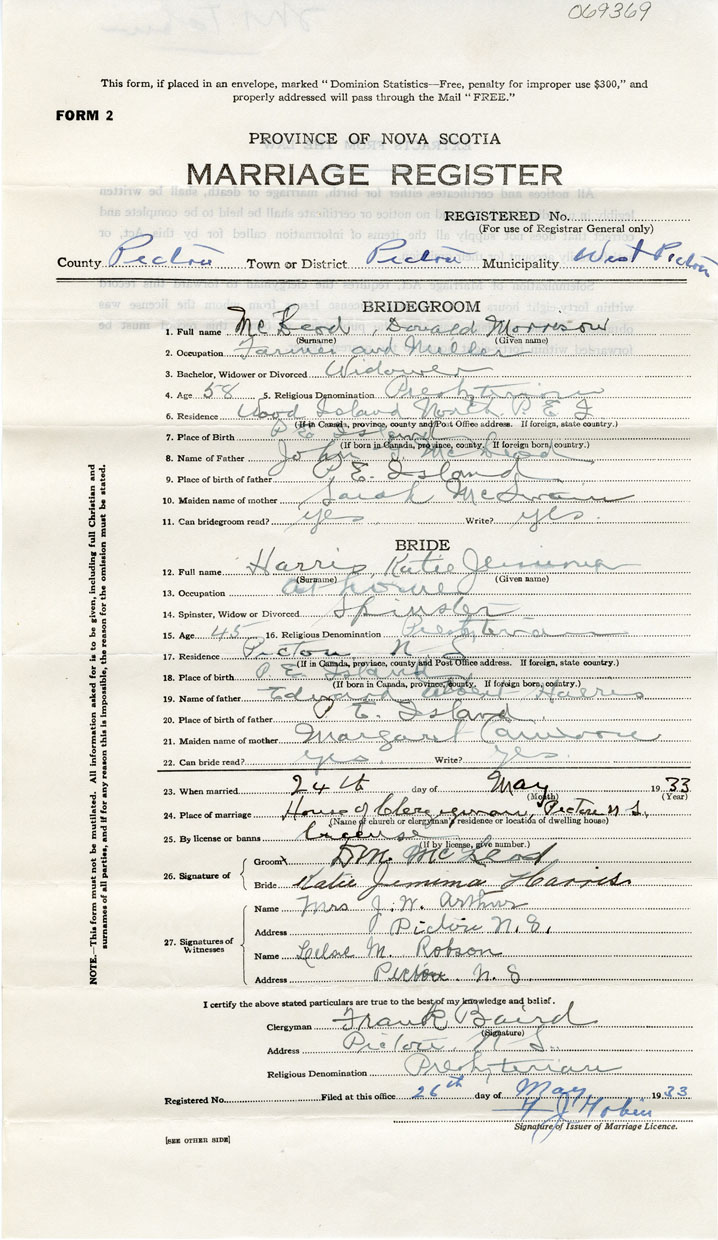 069369
This form, if placed in an envelope, marked "Dominion Statistics—Free, penalty for improper use $300," and
properly addressed will pass through the Mail "FREE."
FORM 2
PROVINCE OF NOVA SCOTIA
MARRIAGE REGISTER
REGISTERED No.
(For use of Registrar General only)
County Pictou Town or District Pictou Municipality West Pictou
BRIDEGROOM
1. Full name McLeod, Donald Morrison
(Surname) (Given name)
2. Occupation Farmer and Miller
3. Bachelor, Widower or Divorced Widower
4. Age 58 5. Religious Denomination Presbyterian
6. Residence Wood Island North P E I
(If in Canada, province, county and Post Office address. If foreign, state country.)
7. Place of Birth P E Island
(If born in Canada, province, county. If foreign born, country.)
8. Name of Father John J McLeod
9. Place of birth of father P. E. Island
10. Maiden name of mother Sarah McSwain
11. Can bridegroom read? yes Write? yes.
BRIDE
12. Full name Harris Katie Jemima
(Surname) (Given name)
13. Occupation at home
14. Spinster, Widow or Divorced Spinster
15. Age 45 16. Religious Denomination Presbyterian
17. Residence Pictou N S
(If in Canada, province, county and Post Office address. If foreign, state country.)
18. Place of birth P E Island
(If born in Canada, province, county. If foreign born, country.)
19. Name of father Edward Albert Harris
20. Place of birth of father P E. Island
21. Maiden name of mother Margaret
22. Can bride read? yes. Write? yes.
23. When married 24th day of May 1933
(Month) (Year)
24. Place of marriage House of Clergyman, Pictou N S.,
(Name of church or clergyman's residence or location of dwelling house)
25. By license or banns license
(If by license, give number.)
26. Signature of
Groom x D M. McLeod
Bride Katie Jemima Harris.
27. Signatures of Witnesses
Name Mrs J. W. Arthur
Address Pictou N. S.
Name M. Robson
Address Pictou. N. S
I certify the above stated particulars are true to the best of my knowledge and belief.
Clergyman Frank Baird
(Signature)
Address Pictou, N S.
Religious Denomination Presbyterian
Registered No. Filed at this office 26th day of May 1933
Signature of Issuer of Marriage Licence.
[SEE OTHER SIDE]
NOTE.—This form must not be mutilated. All information asked for is to be given, including full Christian and
surnames of all parties, and if for any reason this is impossible, the reason for the omission must be stated.